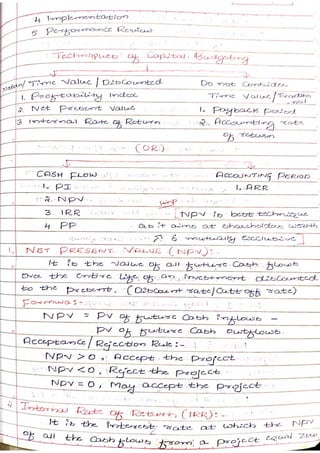 4 Implementation
5 Performance Review
Techniques of Capital Budgeting
Modern/ Time Value / Discounted Do not Consider
1. Profitability Index Time Value/ Tradition
-nal
2. Net Present Value 1. Payback period
3 Internal Rate of Return 2. Accounting rate
of return
(OR)
CASH FLOW ACCOUNTING PERIOD
1. PI 1. ARR
2. NPV Imp
3. IRR [NPV is best technique
4 PP as it aims at shareholders wealth
↗ & mutually Exclusive]
1. NET PRESENT VALUE (NPV):-
It is the value of all future cash flows
over the entire life of an investment discounted
to the present. (Discount rate/Cutt off rate)
Formula:-
NPV = PV of future Cash inflows -
PV of future Cash outflows.
Acceptance/ Rejection Rule:-
NPV > 0, Accept the Project
NPV < 0, Reject the project
NPV = 0, May accept the project
Internal Rate of Return (IRR):-
It is the interest rate at which the NPV
of all the cash flows from a project equal zero